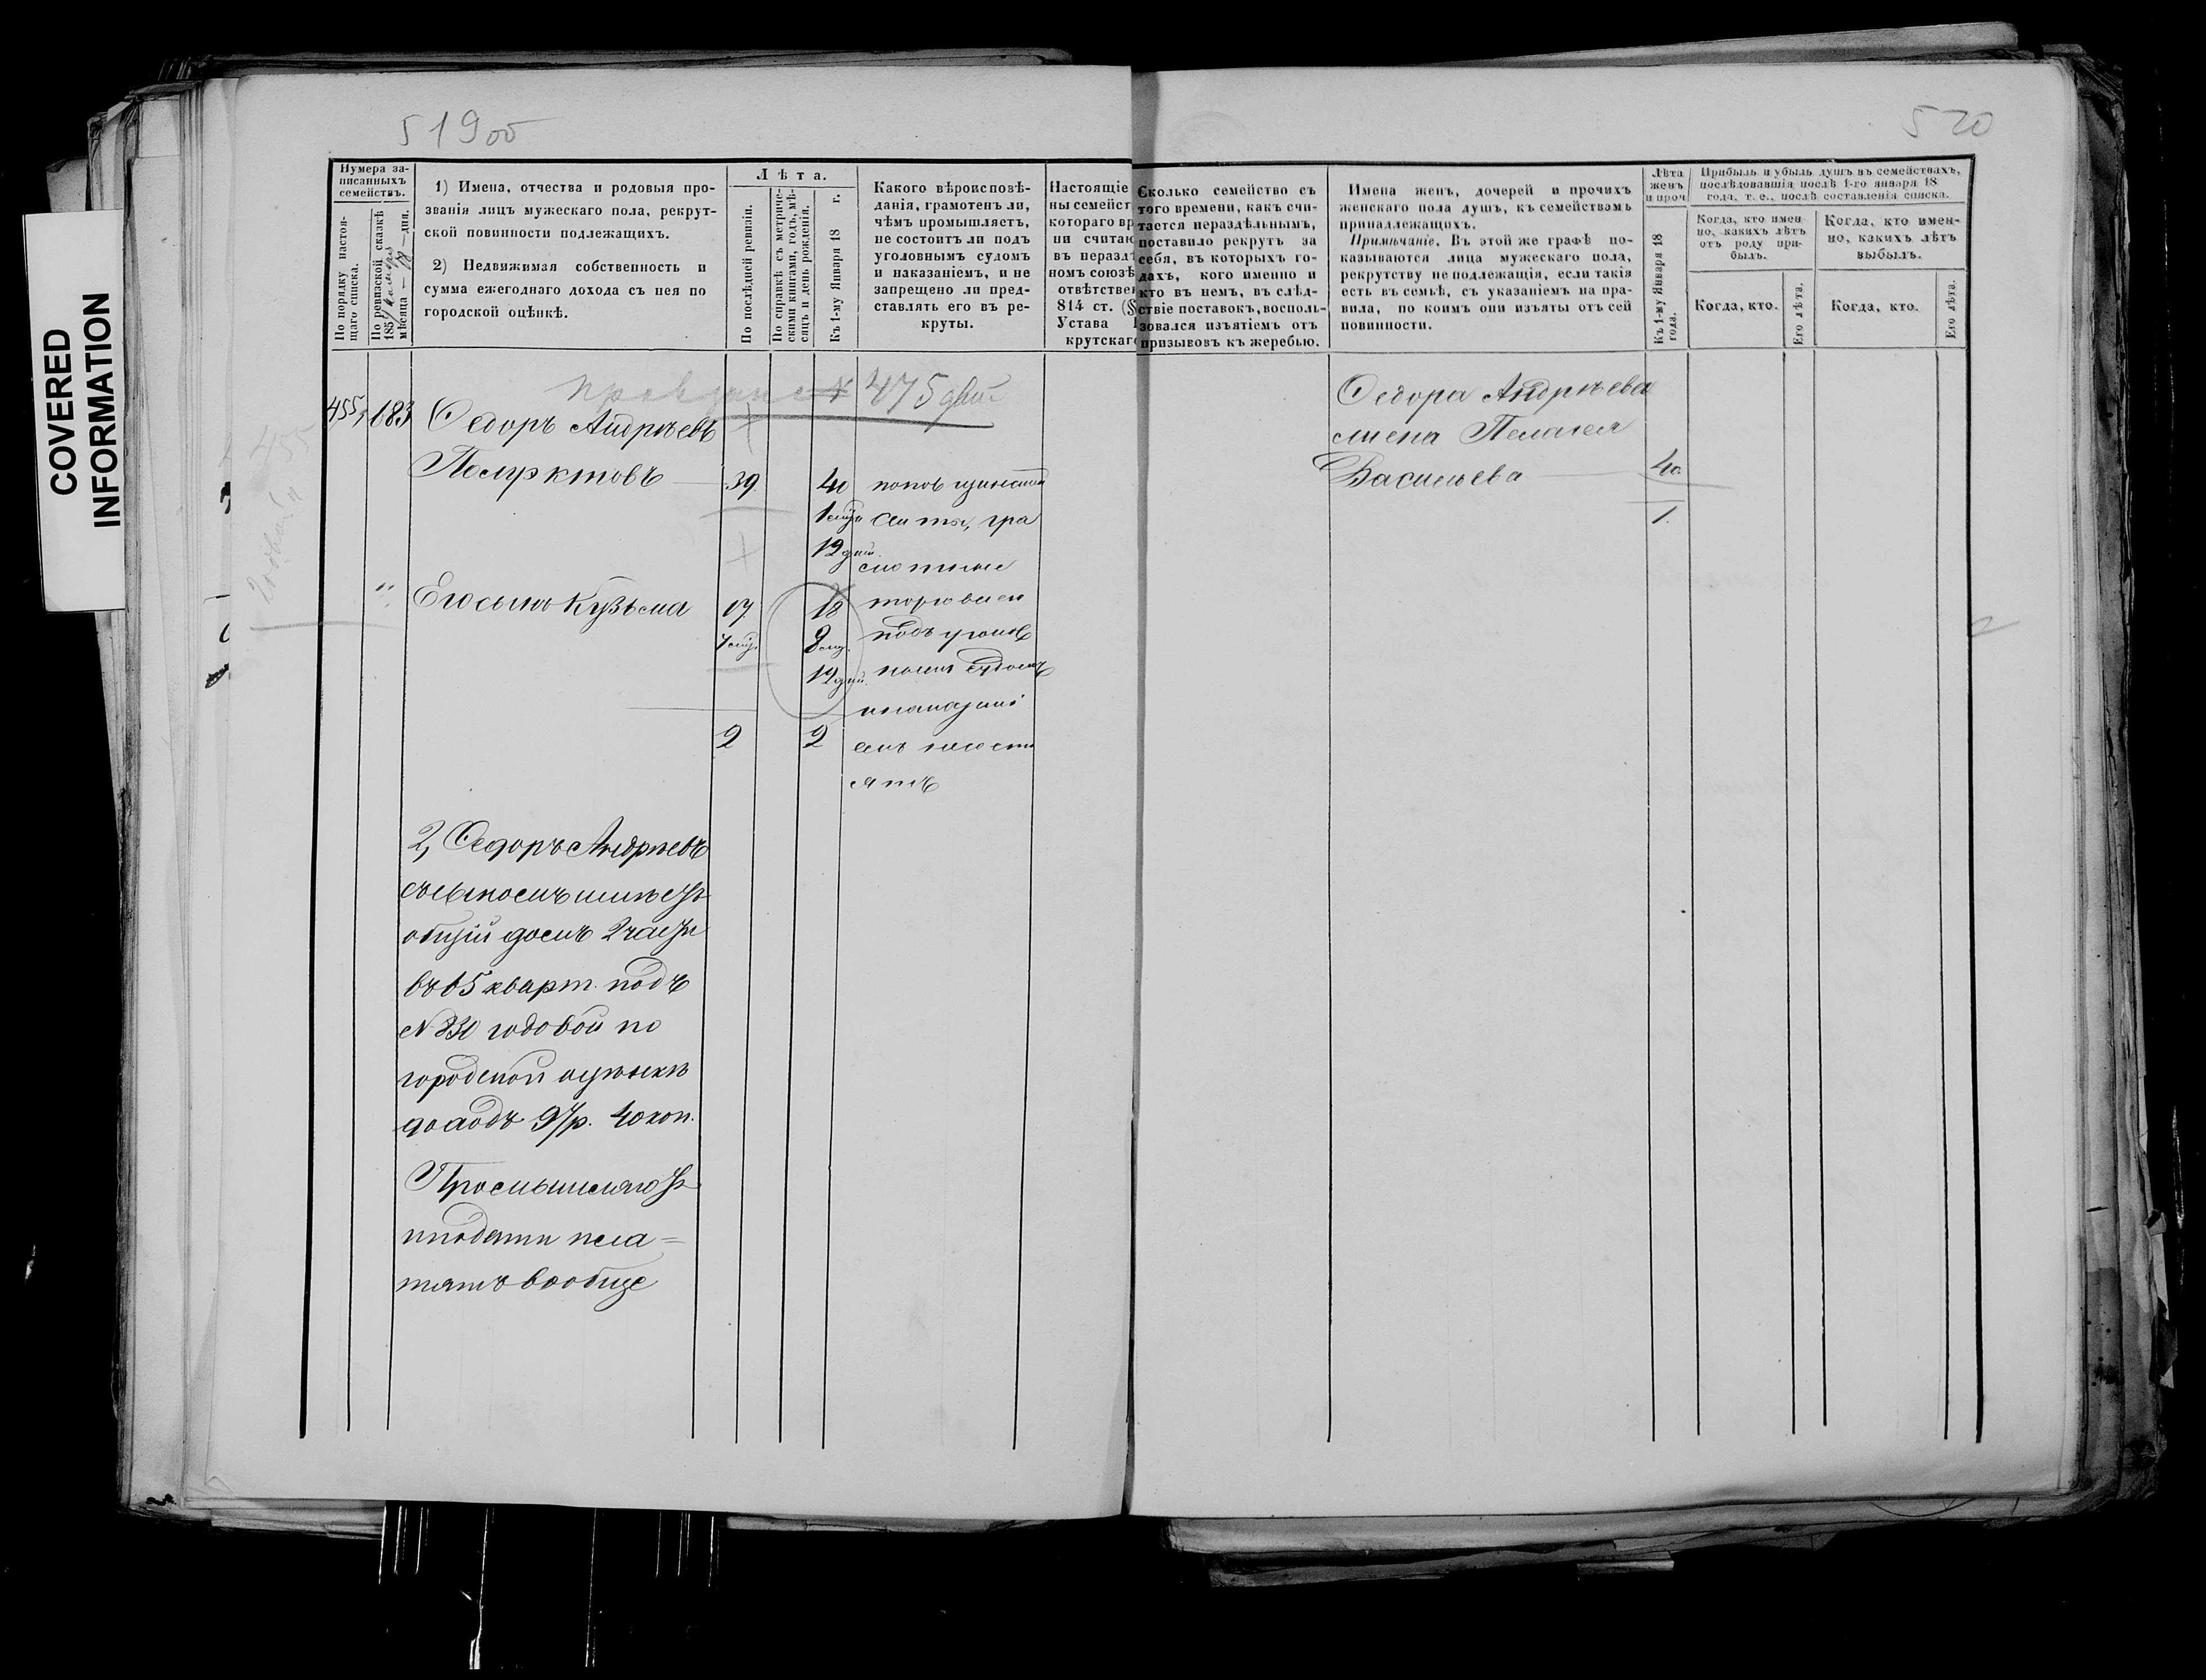 COVERED
INFORMATION
519об
520
Нумера за-
писанныхъ
семействъ.
По порядку настоя-
щаго списка.
По ревизской сказкѣ
185
мѣсяца — дня.
1) Имена, отчества и родовыя про-
званія лицъ мужескаго пола, рекрут-
ской повинности подлежащихъ.
2) Недвижимая собственность и
сумма ежегоднаго дохода съ нея по
городской оцѣнкѣ.
Лѣта.
По послѣдней ревизіи.
По справкѣ съ метриче-
скими книгами, годъ, мѣ-
сяцъ и день рожденія.
Къ 1-му Января 18 г.
Какого вѣроисповѣ-
данія, грамотенъ ли,
чѣмъ промышляетъ,
не состоитъ ли подъ
уголовнымъ судомъ
и наказаніемъ, и не
запрещено ли пред-
ставлять его въ ре-
круты.
Настоящіе
ны семейст
котораго вр
ни считаю
въ нераздѣ
номъ союзѣ
отвѣтствен
814 ст. (§
Устава
крутскаго
Сколько семейство съ
того времени, какъ счи-
тается нераздѣльнымъ,
поставило рекрутъ за
себя, въ которыхъ го-
дахъ, кого именно и
кто въ немъ, въ слѣд-
ствіе поставокъ, восполь-
зовался изъятіемъ отъ
призывовъ къ жеребью.
Имена женъ, дочерей и прочихъ
женскаго пола душъ, къ семействамъ
принадлежащихъ.
Примѣчаніе. Въ этой же графѣ по-
казываются лица мужескаго пола,
рекрутству не подлежащія, если такія
есть въ семьѣ, съ указаніемъ на пра-
вила, по коимъ они изъяты отъ сей
повинности.
Лѣта
женъ
и проч
Къ 1-му Января 18
года.
Прибыль и убыль душъ въ семействахъ,
послѣдовавшія послѣ 1-го января 18
года, т. е., послѣ составленія списка.
Когда, кто имен-
но, какихъ лѣтъ
отъ роду при-
былъ.
Когда, кто имен-
но, какихъ лѣтъ
выбылъ.
Когда, кто.
Его лѣта.
Когда, кто.
Его лѣта.
№ 475
455
455, 683 Ѳедоръ Андрѣевъ
Полуэктовъ 39 40
1 мѣс.
12 дн.
поповщинской
секты, гра
мотные
торговлей
подъ уголов
нымъ судомъ
и наказані
емъ не состо
ятъ
" Его сынъ Кузьма 17 18
7 мѣс. 8 мѣс.
12 дн.
2 2
2, Ѳедоръ Андрѣевъ
съ сыномъ имѣетъ
общій домъ 2 части
въ 65 кварт. подъ
№ 830 годовой по
городской оцѣнкѣ
доходъ 97р. 40 коп.
Промышляютъ
и подати пла=
тятъ вообще
Ѳедора Андрѣева
жена Пелагея
Васильева 40
1.